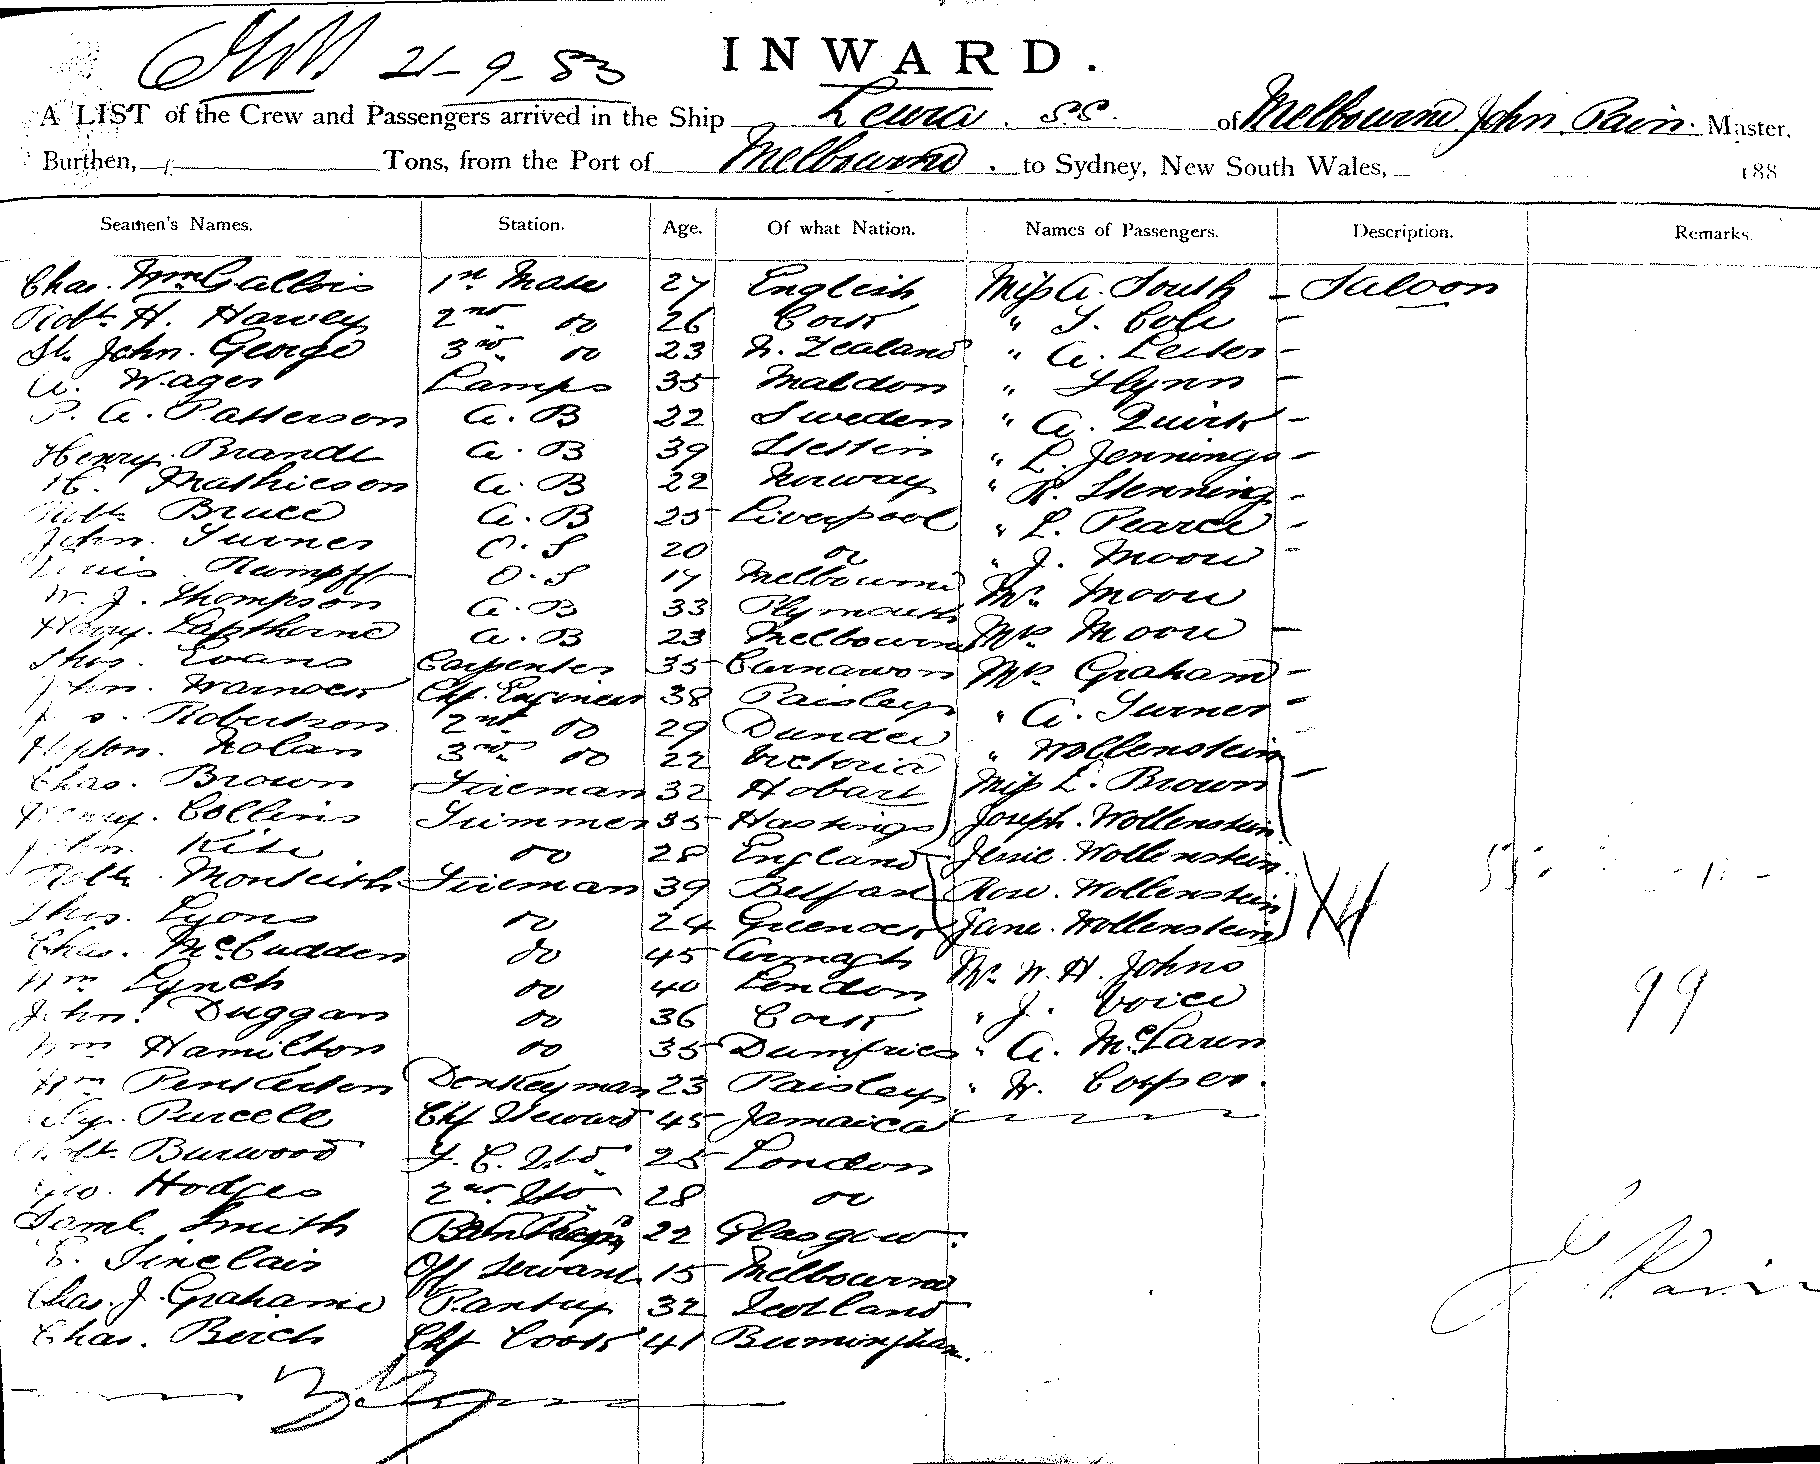 21-9-83
INWARD.
A LIST of the Crew and Passengers arrived in the Ship Leura. S.S. of Melbourne John Pain. Master.
Burthen, Tons, from the Port of Melbourne. to Sydney, New South Wales, 188
Seamen's Names. Station. Age. Of what Nation. Names of Passengers. Description. Remarks.
Chas. Wm Gallois 1st Mate 27 English Miss A. South - Saloon
Robt. H. Harvey 2nd do 26 Cork " S. Cole -
St. John. George 3rd do 23 N. Zealand " A. Lester -
A. Wager Lamps 35 Maldon " Flynn -
P. A. Patterson A. B 22 Sweden " A. Quirk -
Henry. Brandt A. B 39 Stettin " L. Jennings -
H. Mathieson A. B 22 Norway " R. Stenning -
Robt. Bruce A. B 25 Liverpool " L. Pearce -
John. Turner O. S 20 do " J. Moore -
Rumpff O. S 17 Melbourne Mr. Moore
W. J. Thompson A. B 33 Plymouth Mrs Moore -
Henry. Lapthorne A. B 23 Melbourne Mrs Graham -
Thos. Evans Carpenter 35 Carnarvon " A. Turner -
John. Warnock Chf. Engineer 38 Paisley " Wollenstein
Robertson 2nd do 29 Dundee Miss E. Brown -
Nolan 3rd do 22 Victoria Joseph. Wollenstein
Chas. Brown Fireman 32 Hobart Jessie. Wollenstein
Henry. Collins Trimmer 35 Hastings Rose. Wollenstein
John. Kite do 28 England Jane. Wollenstein
Robt. Monteith Fireman 39 Belfast Mr. W. H. Johns
Thos. Lyons do 24 Greenock " J. Voice
Chas. McCudden do 45 Armagh " A. McLaren
Wm Lynch do 40 London " W. Cosper.
John. Duggan do 36 Cork 99
Wm Hamilton do 35 Dumfries
Wm Penderton Donkeyman 23 Paisley
Purcell Chf Steward 45 Jamaica
Robt. Burwood F. C. Std. 25 London
Geo. Hodges 2nd Std 28 do
Saml. Smith 22 Glasgow.
E. Sinclair Off Servant 15 Melbourne
Chas. J. Grahame Pantry 32 Scotland
Chas. Birch Chf Cook 41 Burmingham.
J. Pain